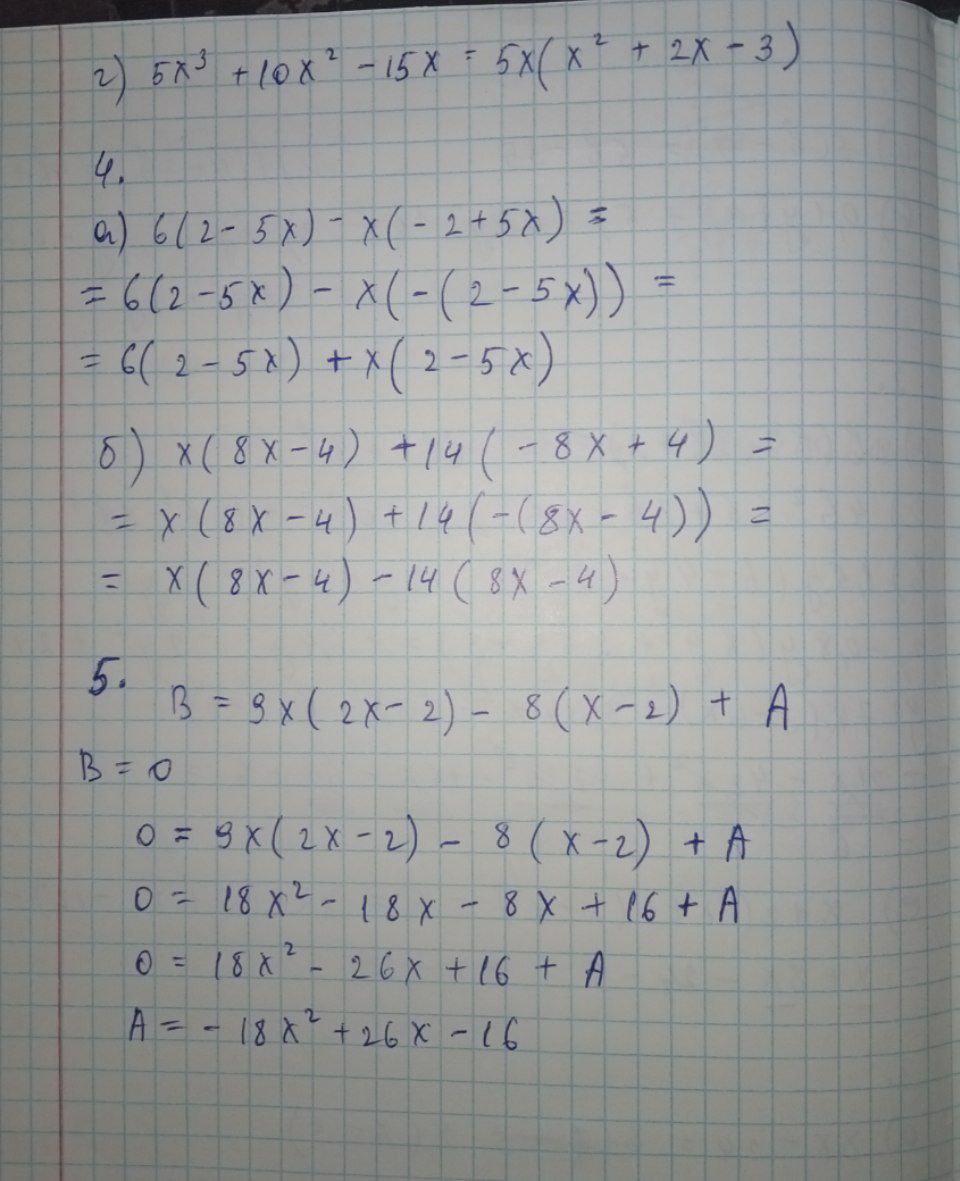 г) 5x³ + 10x² - 15x = 5x(x² + 2x - 3)
4.
а) 6(2 - 5x) - x(- 2 + 5x) =
= 6(2 - 5x) - x(-(2 - 5x)) =
= 6(2 - 5x) + x(2 - 5x)
б) x(8x - 4) + 14(- 8x + 4) =
= x(8x - 4) + 14(-(8x - 4)) =
= x(8x - 4) - 14(8x - 4)
5.
B = 9x(2x - 2) - 8(x - 2) + A
B = 0
0 = 9x(2x - 2) - 8(x - 2) + A
0 = 18x² - 18x - 8x + 16 + A
0 = 18x² - 26x + 16 + A
A = - 18x² + 26x - 16